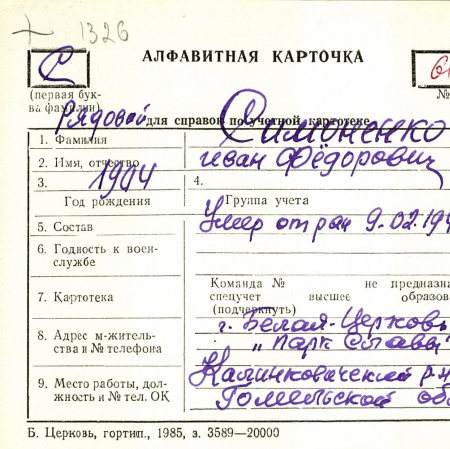 + 1326
С
АЛФАВИТНАЯ КАРТОЧКА
(первая бук-
ва фамилии)
№
Рядовой
для справок по учетной картотеке
1. Фамилия Симоненко
2. Имя, отчество Иван Фёдорович
3. 1904 4.
Год рождения Группа учета
5. Состав Умер от ран 9.02.194
6. Годность к воен-
службе
Команда № не предназна
7. Картотека спецучет высшее образов
(подчеркнуть)
8. Адрес м-житель- г. Белая-Церковь
ства и № телефона „Парк Славы"
9. Место работы, дол- Калинковический р-н
жность и № тел. ОК Гомельской об
Б. Церковь, гортип., 1985, з. 3589—20000